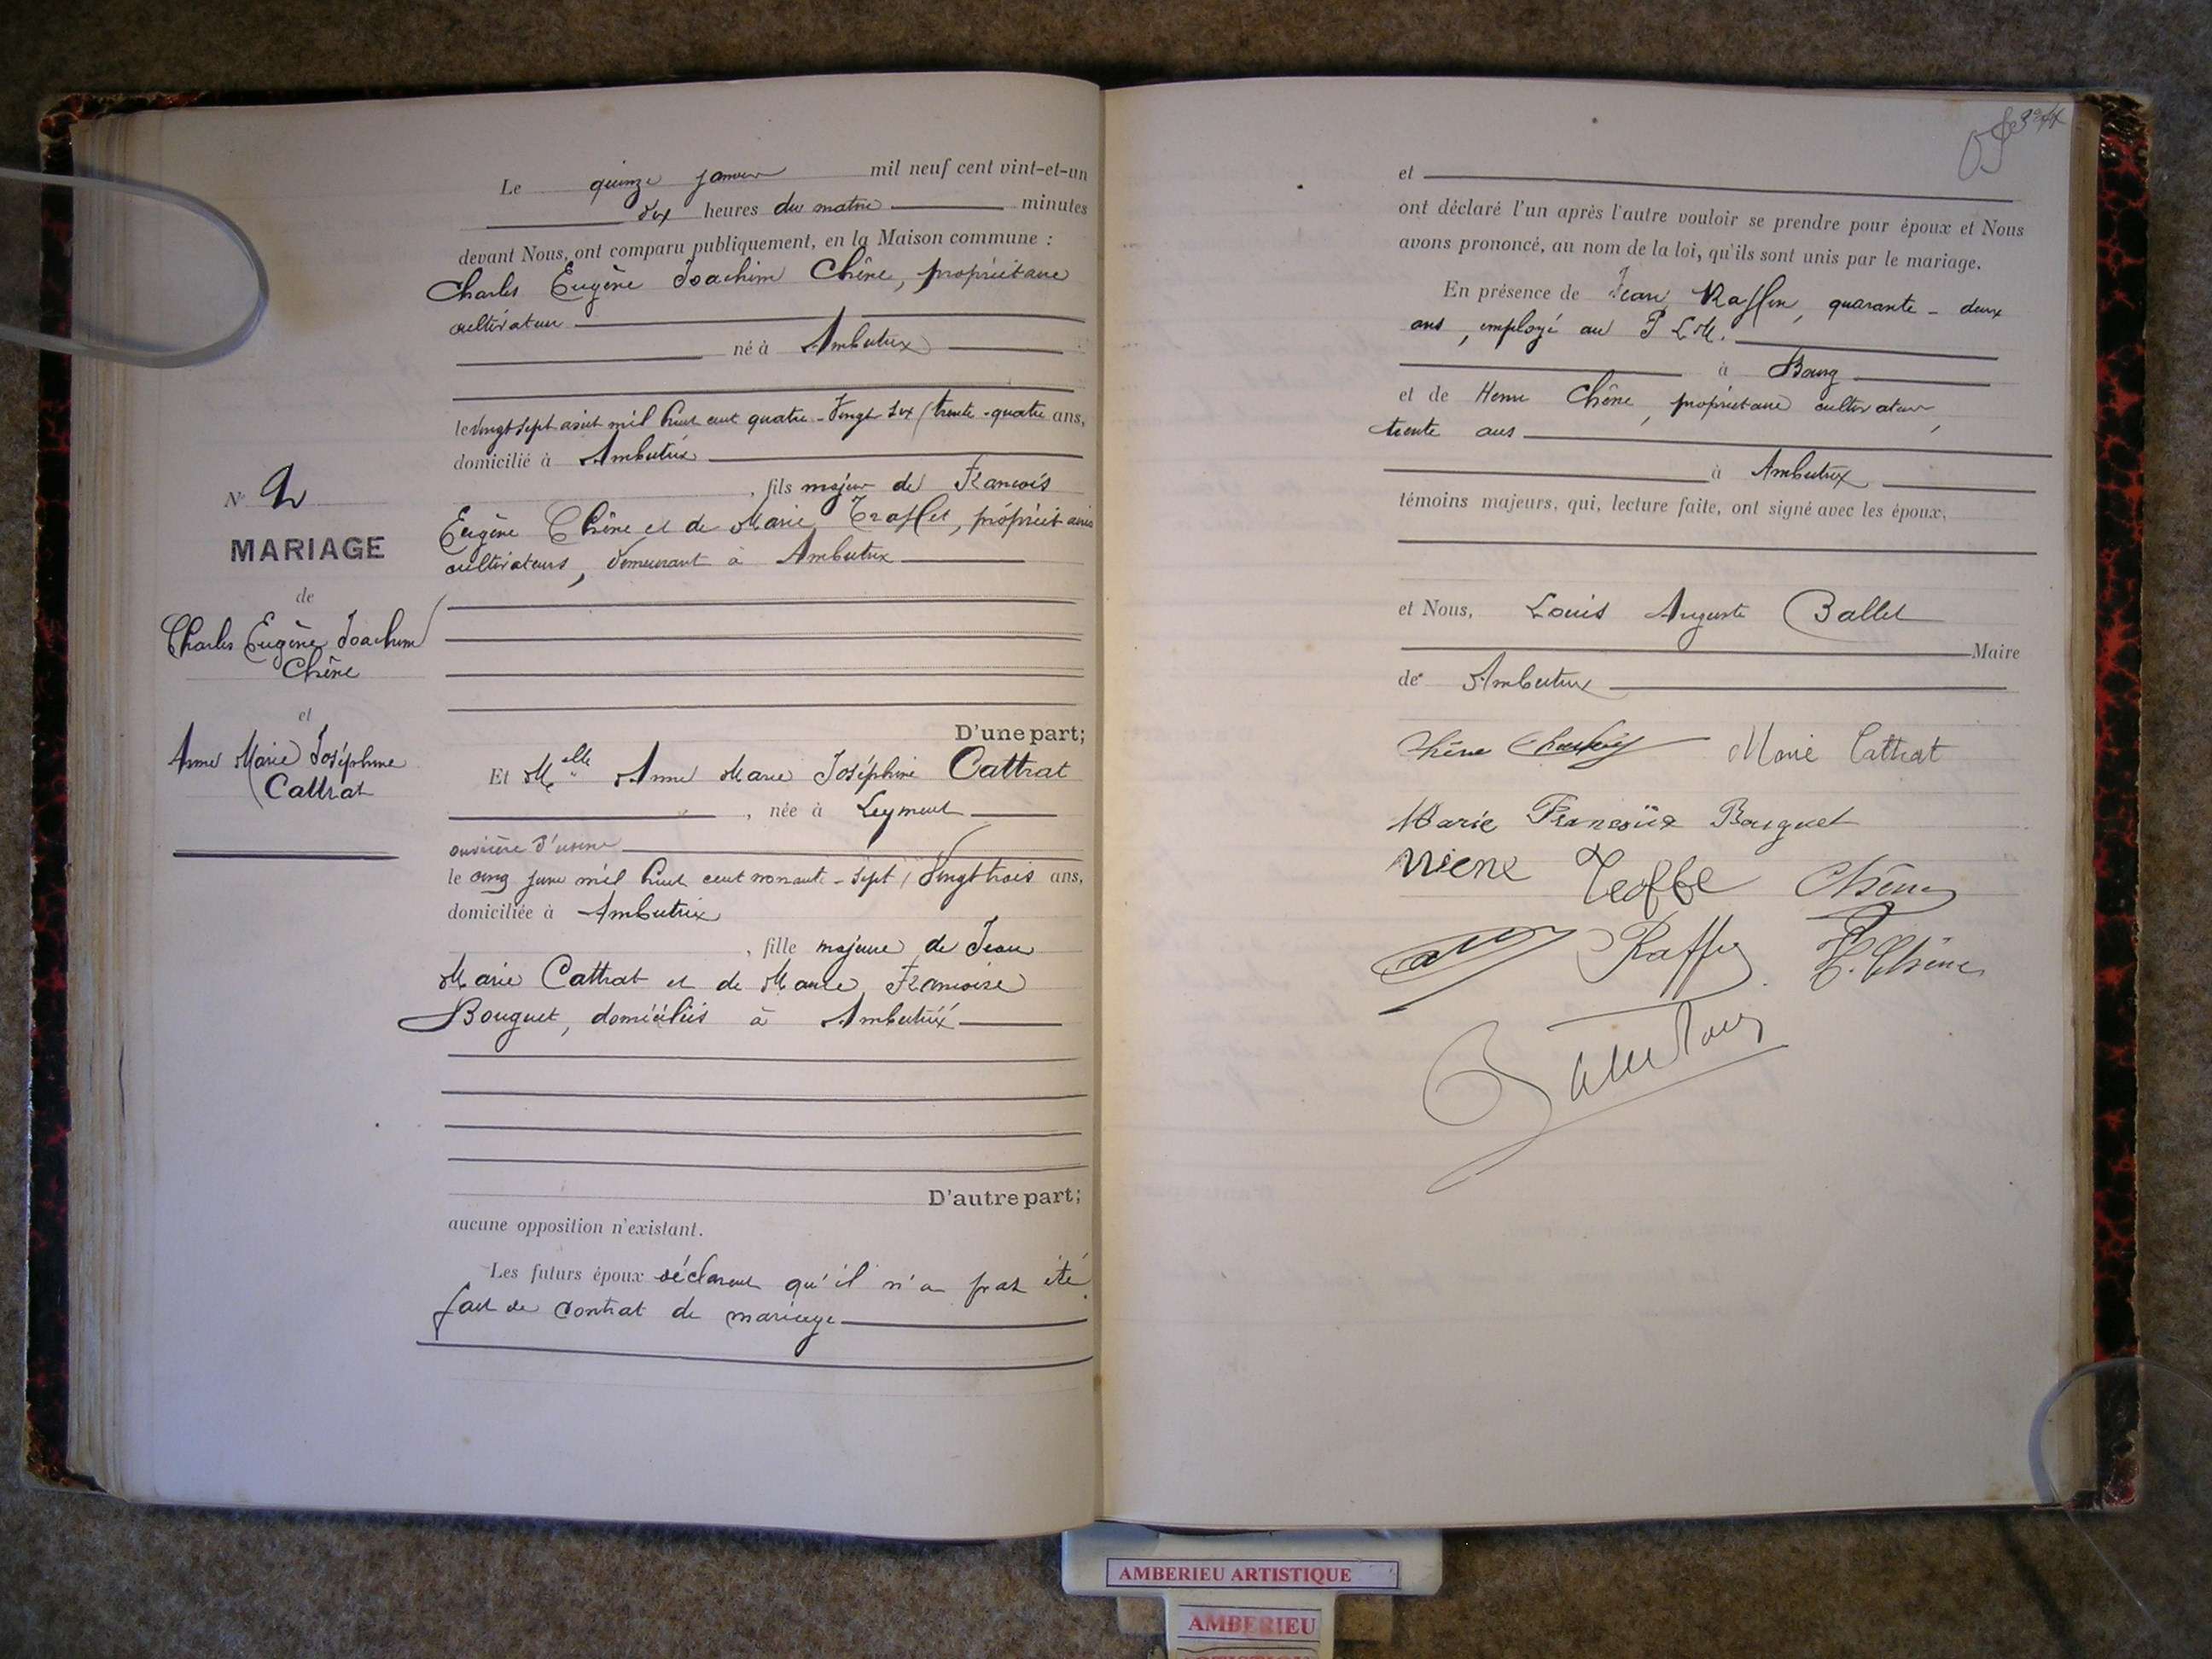 Le quinze janvier mil neuf cent vint-et-un
dix heures du matin minutes
devant Nous, ont comparu publiquement, en la Maison commune :
Charles Eugène Joachim Chêne, propriétaire
cultivateur
né à Ambutrix
le vingt sept août mil huit cent quatre-vingt six / trente-quatre ans,
domicilié à Ambutrix
, fils majeur de François
Eugène Chêne et de Marie, propriétaires
cultivateurs, demeurant à Ambutrix
N° 2
MARIAGE
de
Charles Eugène Joachim
Chêne
et
Anne Marie Joséphine
Cattrat
D'une part;
Et Melle Anne Marie Joséphine Cattrat
, née à Leyment
ouvrière d'usine
le cinq juin mil huit cent nonante-sept / vingt trois ans,
domiciliée à Ambutrix
, fille majeure de Jean
Marie Cattrat et de Marie Françoise
Bouguet, domiciliés à Ambutrix
D'autre part;
aucune opposition n'existant.
Les futurs époux déclarent qu'il n'a pas été
fait de contrat de mariage
et
ont déclaré l'un après l'autre vouloir se prendre pour époux et Nous
avons prononcé, au nom de la loi, qu'ils sont unis par le mariage.
En présence de Jean Raffin, quarante-deux
ans, employé au P L M.
à Bourg
et de Henri Chêne, propriétaire cultivateur,
trente ans
à Ambutrix
témoins majeurs, qui, lecture faite, ont signé avec les époux,
et Nous, Louis Auguste Ballet
Maire
de Ambutrix
Chêne Marie Cattrat
Marie Bouguet
Chêne
Raffin H. Chêne
AMBERIEU ARTISTIQUE
AMBERIEU
ARTISTIQUE